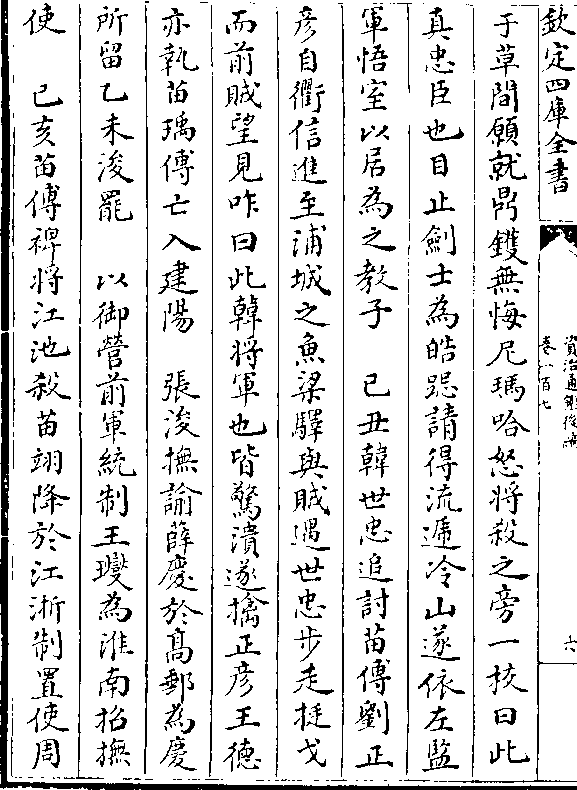 欽定四庫全書
資治通鑑後編
卷一百七
六
于草間願就鼎鑊無悔尼瑪哈怒將殺之旁一校曰此
真忠臣也目止劍士為皓跽請得流遞冷山遂依左監
軍悟室以居為之教子　己丑韓世忠追討苗傅劉正
彦自衢信進至浦城之魚梁驛與賊遇世忠步走挺戈
而前賊望見咋曰此韓將軍也皆驚潰遂擒正彦王德
亦執苗瑀傅亡入建陽　張浚撫諭薛慶於髙郵為慶
所留乙未浚罷　以御營前軍統制王𤫉為淮南招撫
使　己亥苗傅裨將江池殺苗翊降於江浙制置使周